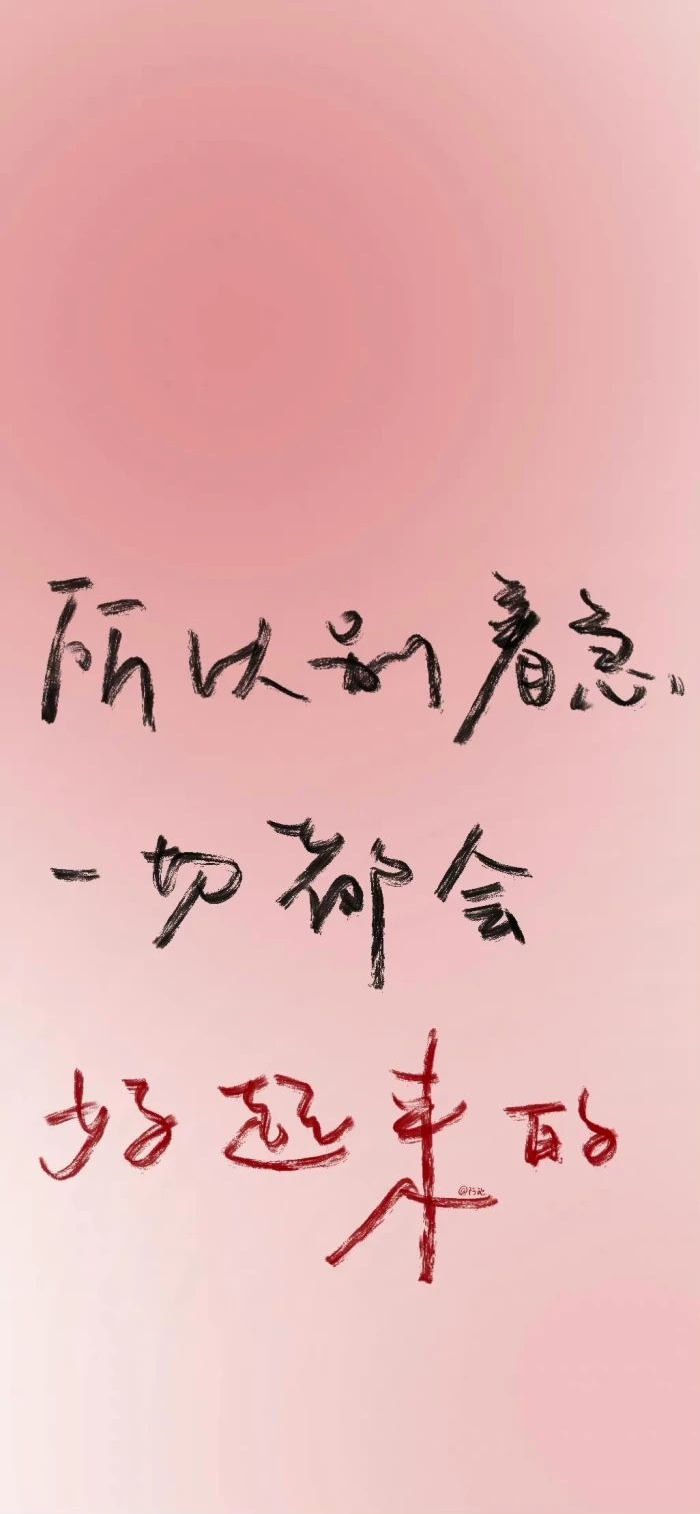 所以别着急、
一切都会
好起来的